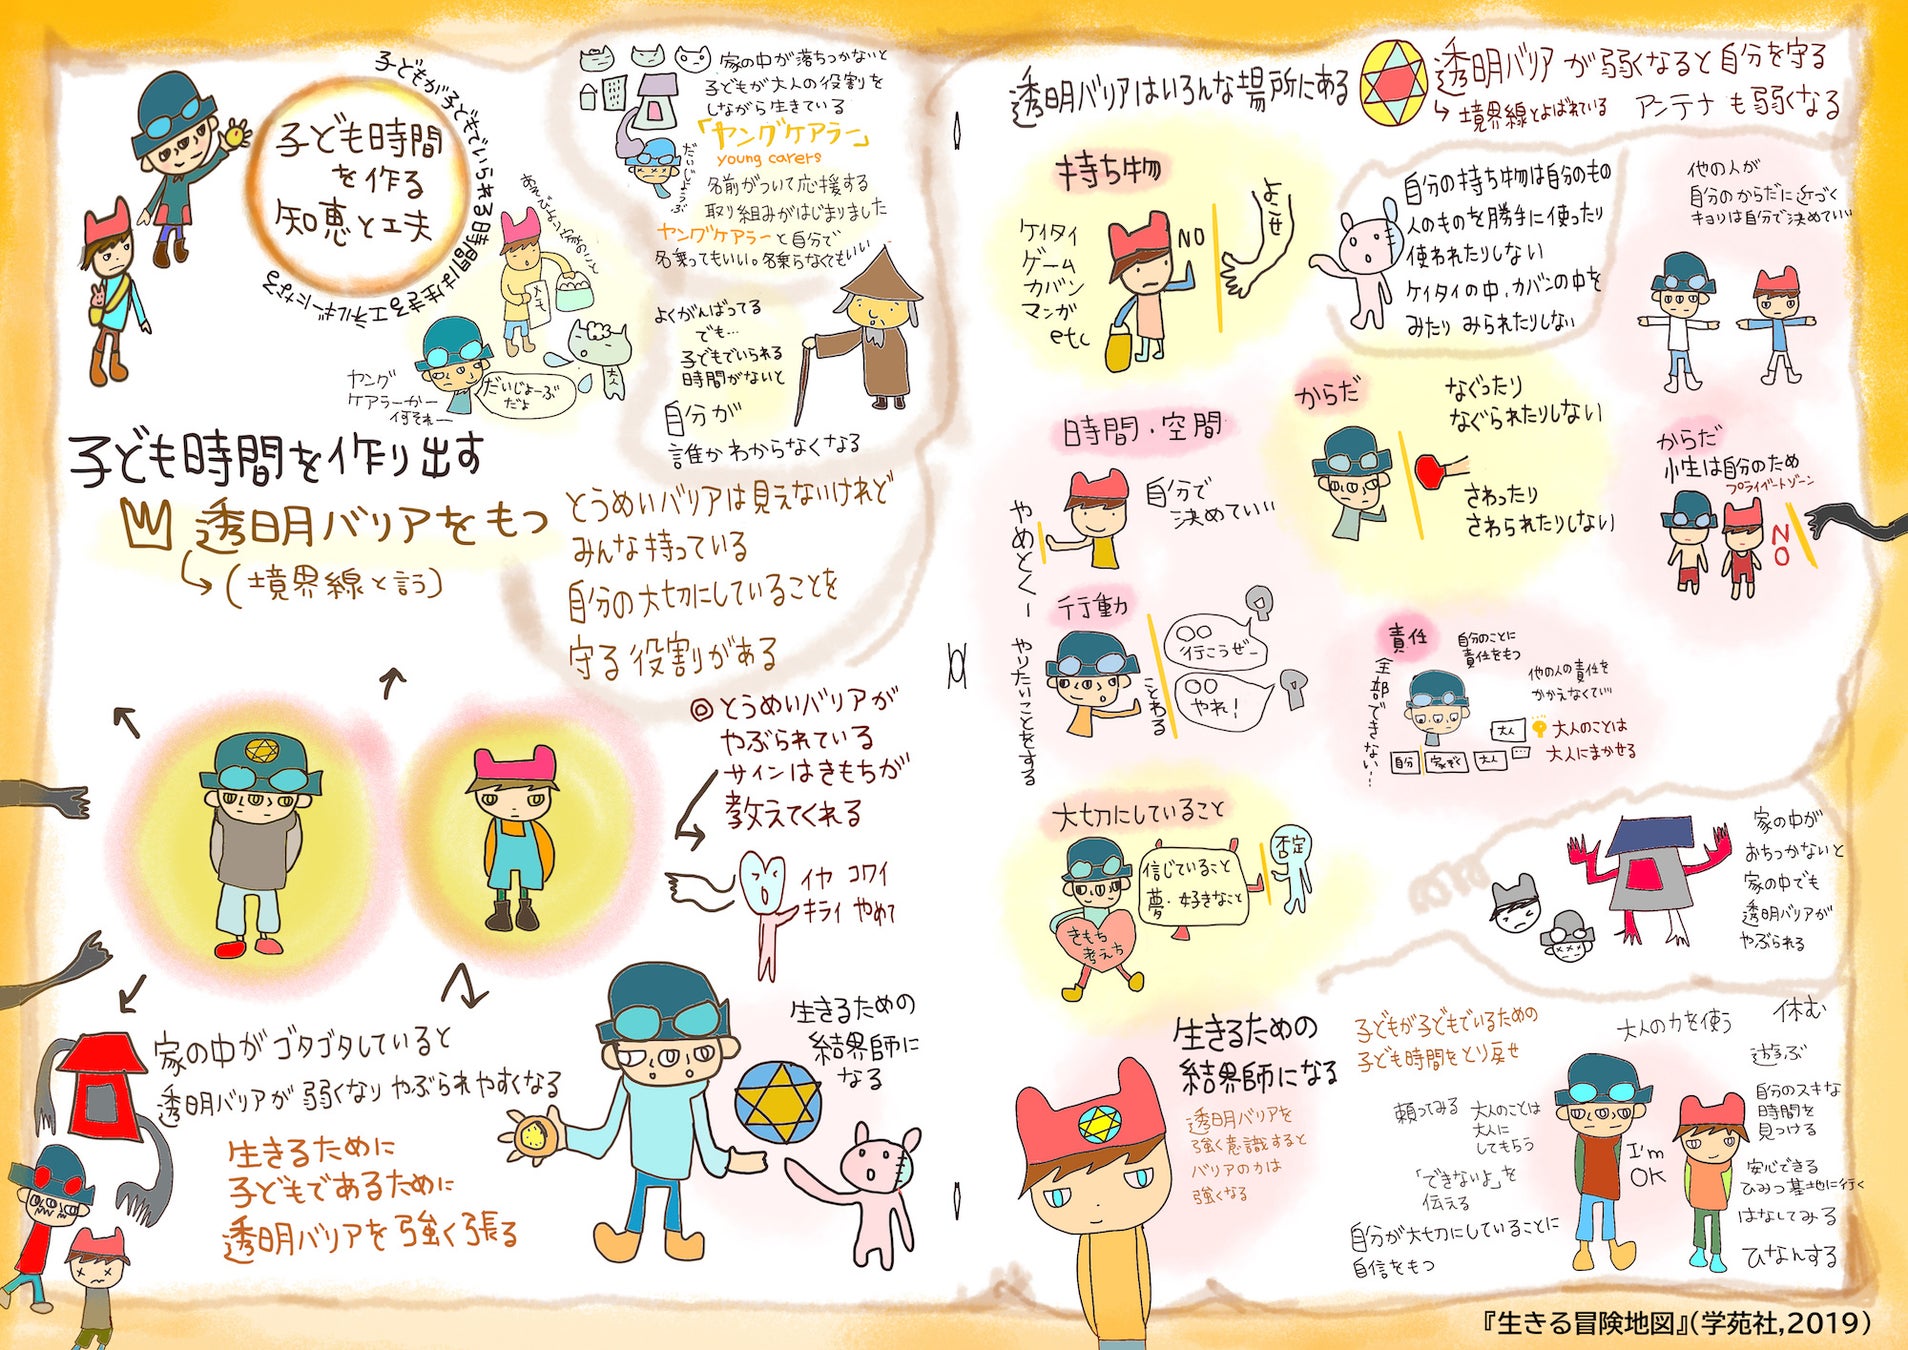 子ども時間
を作る
知恵と工夫
子どもが子どもでいられる時間は生きるエネルギーになる
家の中が落ちつかないと
子どもが大人の役割を
しながら生きている
「ヤングケアラー」
young carers
名前がついて応援する
取り組みがはじまりました
ヤングケアラーと自分で
名乗ってもいい。名乗らなくてもいい
だいじょうぶ
メモ
ヤング
ケアラーかー
何それー
だいじょーぶ
だよ
大人
よくがんばってる
でも…
子どもでいられる
時間がないと
自分が
誰かわからなくなる
子ども時間を作り出す
透明バリアをもつ
(境界線と言う)
とうめいバリアは見えないけれど
みんな持っている
自分の大切にしていることを
守る役割がある
◎とうめいバリアが
やぶられている
サインはきもちが
教えてくれる
イヤ コワイ
キライ やめて
家の中がゴタゴタしていると
透明バリアが弱くなりやぶられやすくなる
生きるために
子どもであるために
透明バリアを強く張る
生きるための
結界師に
なる
透明バリアはいろんな場所にある
透明バリアが弱くなると自分を守る
境界線とよばれている
アンテナも弱くなる
持ち物
ケイタイ
ゲーム
カバン
マンガ
etc
NO
よこせ
自分の持ち物は自分のもの
人のものを勝手に使ったり
使われたりしない
ケイタイの中、カバンの中を
みたり みられたりしない
他の人が
自分のからだに近づく
キョリは自分で決めていい
時間・空間
自分で
決めていい
やめとくー
やりたいことをする
からだ
なぐったり
なぐられたりしない
さわったり
さわられたりしない
からだ
小生は自分のため
プライベートゾーン
NO
行動
〇〇
行こうぜー
〇〇
やれ!
ことわる
責任
自分のことに
責任をもつ
全部できない…
他の人の責任を
かかえなくていい
大人
自分
家ぞく
大人
大人のことは
大人にまかせる
大切にしていること
信じていること
夢・好きなこと
否定
きもち
考えち
家の中が
おちつかないと
家の中でも
透明バリアが
やぶられる
生きるための
結界師になる
透明バリアを
強く意識すると
バリアの力は
強くなる
子どもが子どもでいるための
子ども時間をとり戻せ
大人の力を使う
休む
遊ぶ
頼ってみる
大人のことは
大人に
してもらう
「できないよ」を
伝える
自分が大切にしていることに
自信をもつ
I'm
OK
自分のスキな
時間を
見つける
安心できる
ひみつ基地に行く
はなしてみる
ひなんする
『生きる冒険地図』(学苑社,2019)